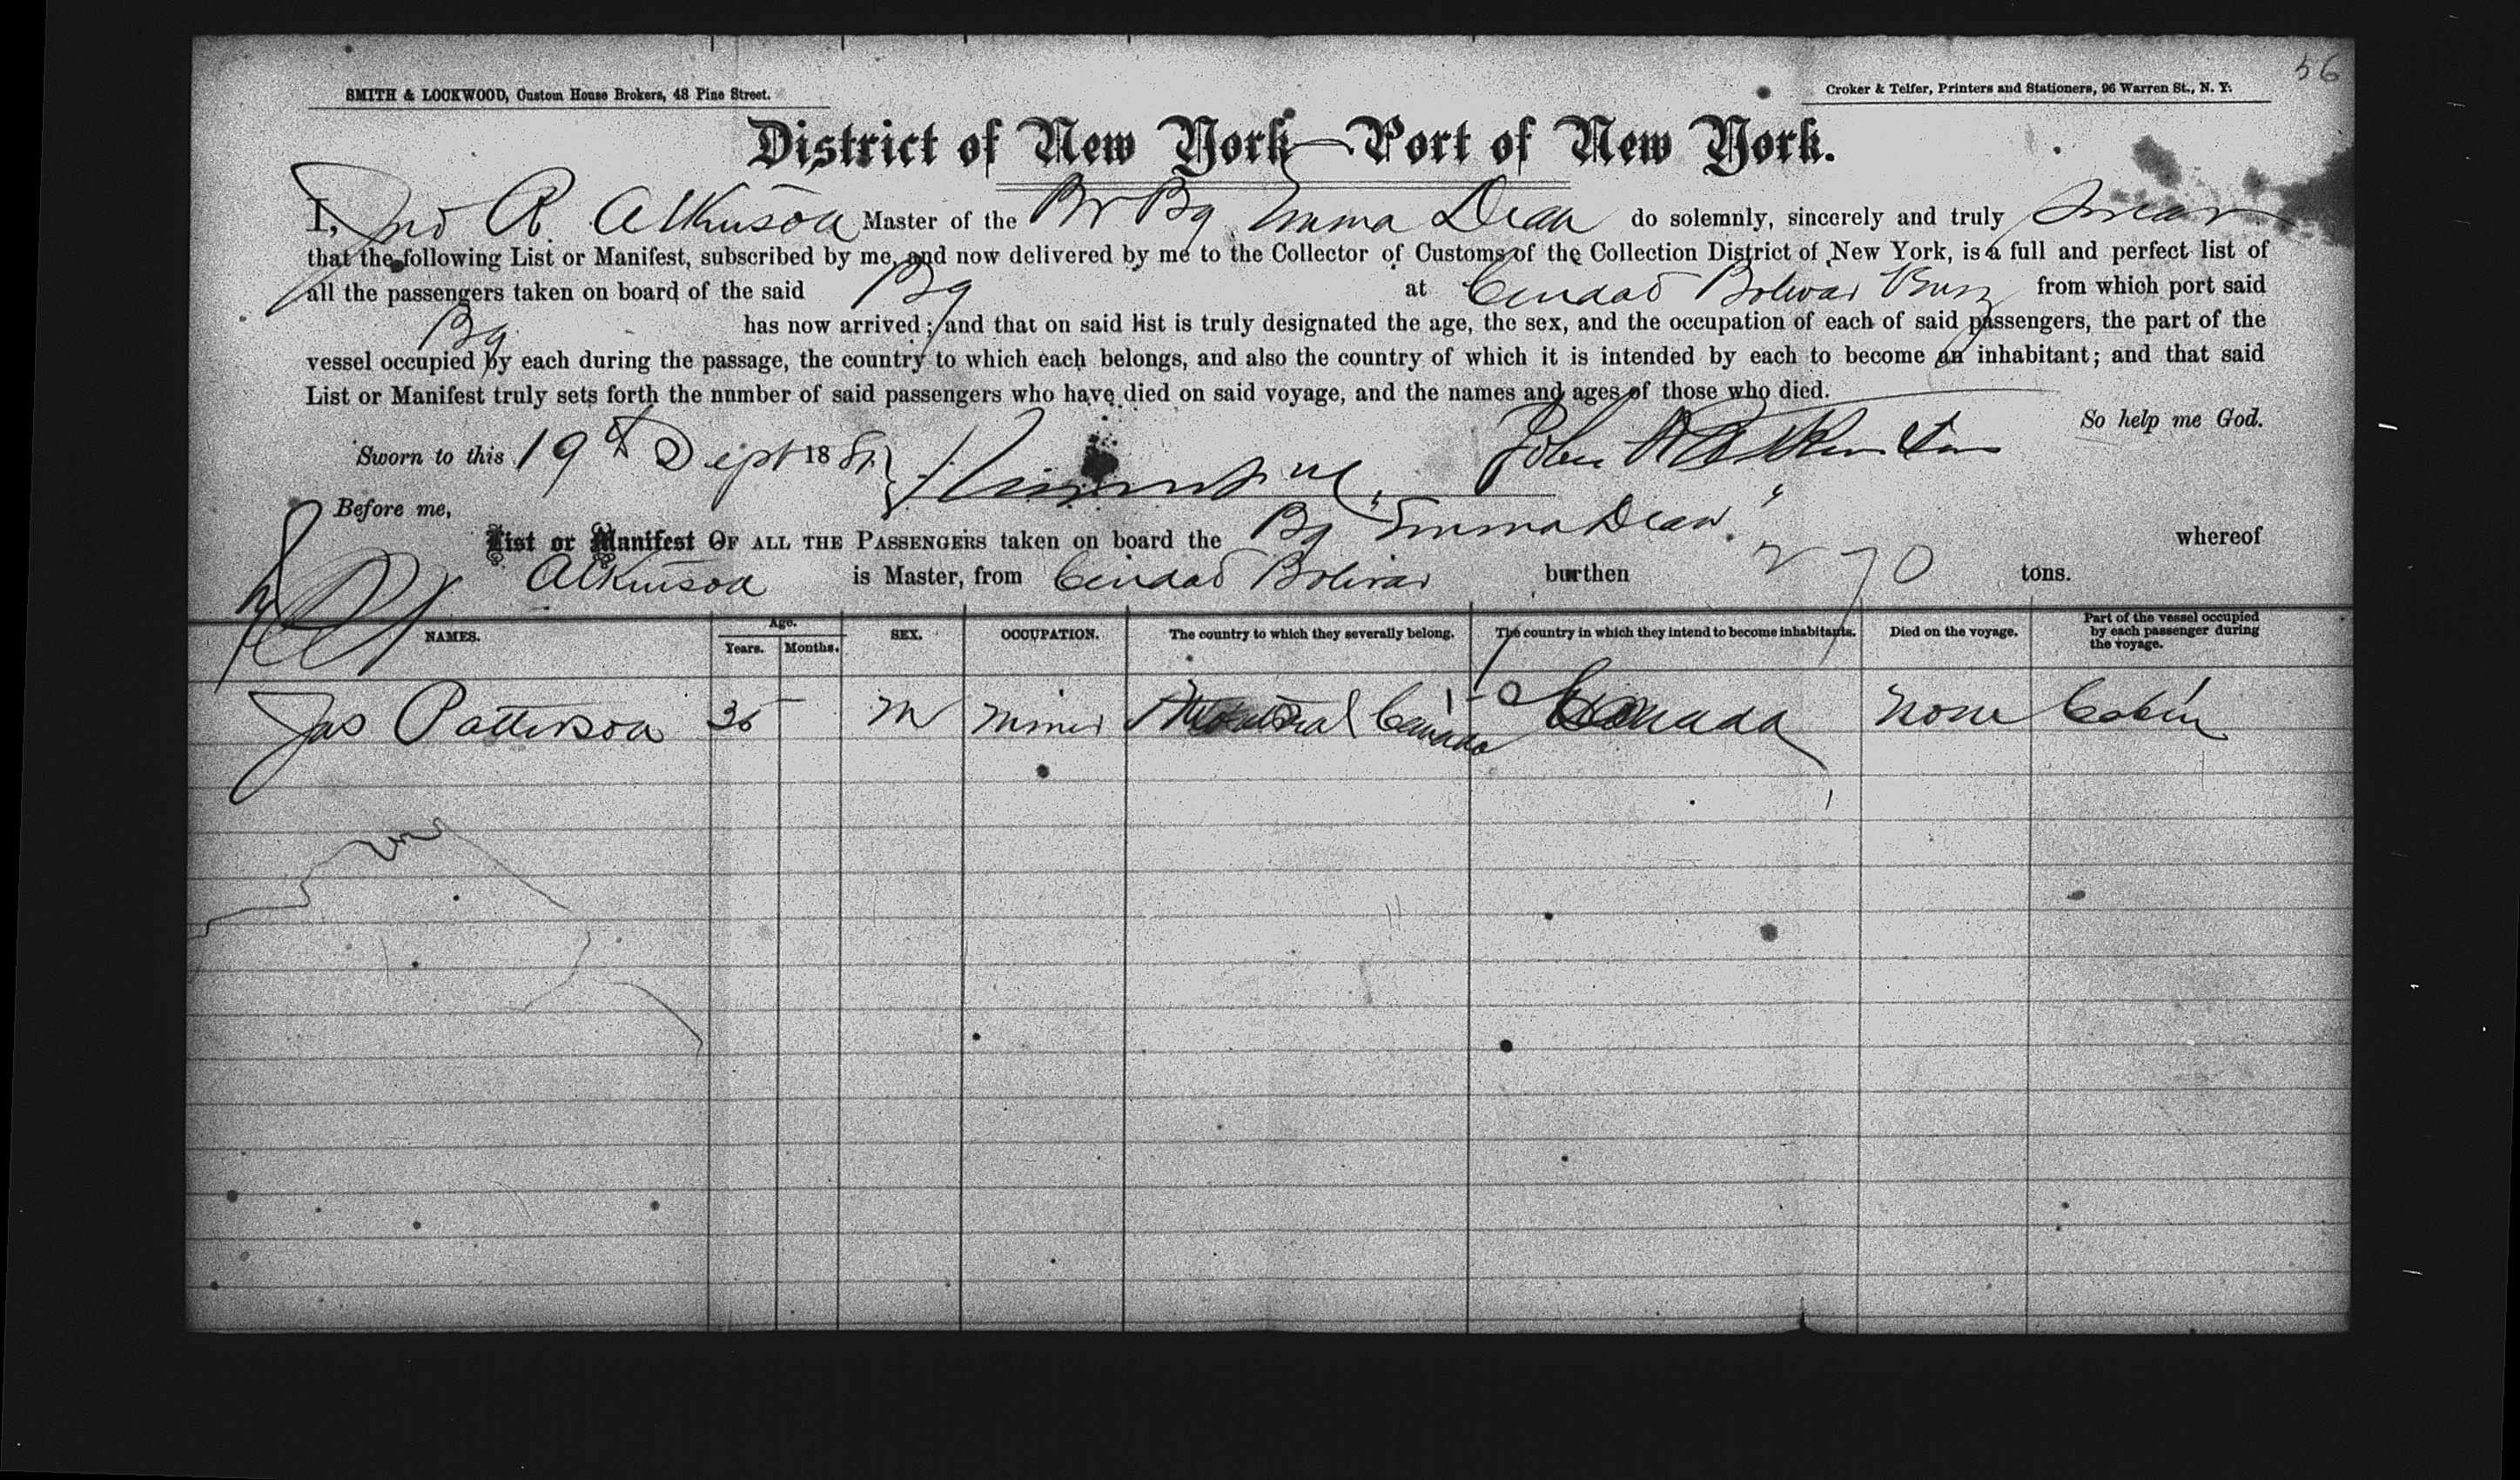 56
SMITH & LOCKWOOD, Custom House Brokers, 48 Pine Street.
Croker & Telfer, Printers and Stationers, 96 Warren St., N. Y.
District of New York—Port of New York.
I, Jno R. Atkinson Master of the Br Bg Emma Dean do solemnly, sincerely and truly swear
that the following List or Manifest, subscribed by me, and now delivered by me to the Collector of Customs of the Collection District of New York, is a full and perfect list of
all the passengers taken on board of the said Bg at Ciudad Bolivar from which port said
Bg has now arrived; and that on said list is truly designated the age, the sex, and the occupation of each of said passengers, the part of the
vessel occupied by each during the passage, the country to which each belongs, and also the country of which it is intended by each to become an inhabitant; and that said
List or Manifest truly sets forth the nnmber of said passengers who have died on said voyage, and the names and ages of those who died.
So help me God.
Sworn to this 19th Sept 1881 John R Atkinson
Before me,
List or Manifest OF ALL THE PASSENGERS taken on board the Bg "Emma Dean" whereof
Atkinson is Master, from Ciudad Bolivar burthen 270 tons.
NAMES. Age. Years. Months. SEX. OCCUPATION. The country to which they severally belong. The country in which they intend to become inhabitants. Died on the voyage. Part of the vessel occupied by each passenger during the voyage.
Jas Patterson M Miner Montreal Canada Canada None Cabin